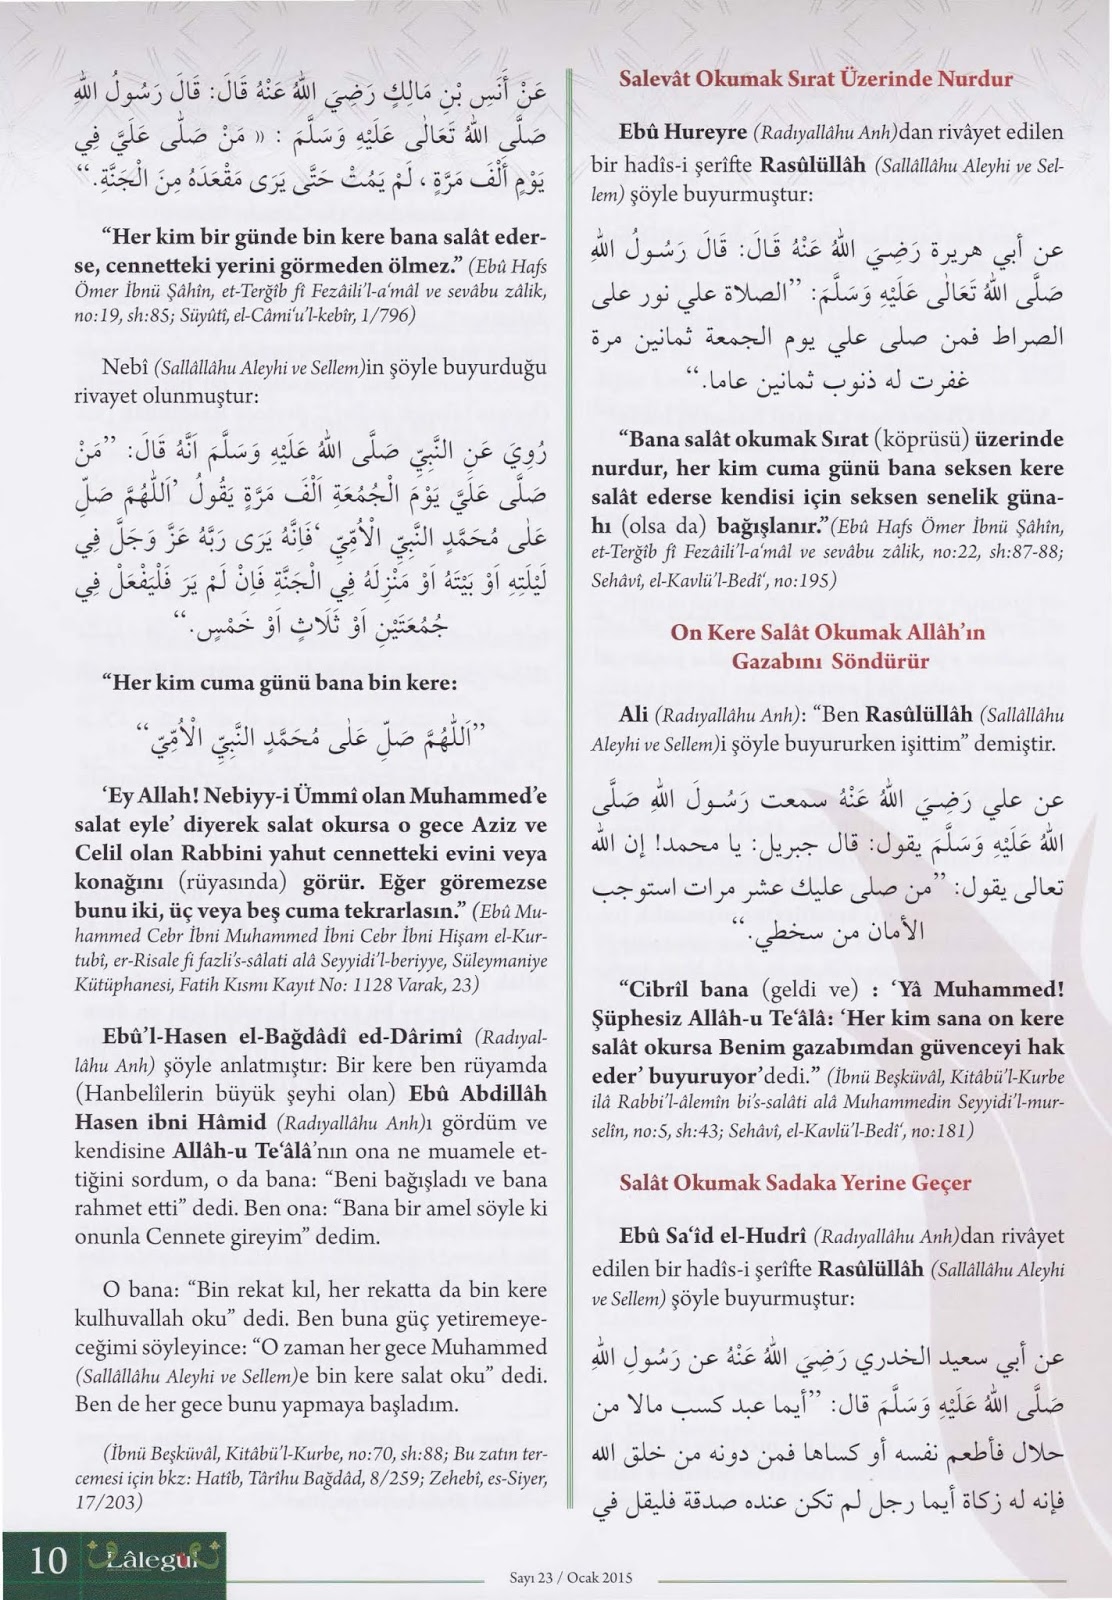 عَنْ أَنَسِ بْنِ مَالِكٍ رَضِيَ اللهُ عَنْهُ قَالَ: قَالَ رَسُولُ اللهِ
صَلَّى اللهُ تَعَالٰى عَلَيْهِ وَسَلَّمَ : « مَنْ صَلَّى عَلَيَّ فِي
يَوْمٍ أَلْفَ مَرَّةٍ ، لَمْ يَمُتْ حَتَّى يَرَى مَقْعَدَهُ مِنَ الْجَنَّةِ.“
“Her kim bir günde bin kere bana salât eder-
se, cennetteki yerini görmeden ölmez.” (Ebû Hafs
Ömer İbnü Şâhîn, et-Terğîb fî Fezâili’l-a‘mâl ve sevâbu zâlik,
no:19, sh:85; Süyûtî, el-Câmi‘u’l-kebîr, 1/796)
Nebî (Sallâllâhu Aleyhi ve Sellem)in şöyle buyurduğu
rivayet olunmuştur:
رُوِيَ عَنِ النَّبِيِّ صَلَّى اللهُ عَلَيْهِ وَسَلَّمَ اَنَّهُ قَالَ: ”مَنْ
صَلَّى عَلَيَّ يَوْمَ الْجُمُعَةِ اَلْفَ مَرَّةٍ يَقُولُ ’اَللّٰهُمَّ صَلِّ
عَلٰى مُحَمَّدٍ النَّبِيِّ الْاُمِّيِّ ‘فَاِنَّهُ يَرَى رَبَّهُ عَزَّ وَجَلَّ فِي
لَيْلَتِهِ اَوْ بَيْتَهُ اَوْ مَنْزِلَهُ فِي الْجَنَّةِ فَاِنْ لَمْ يَرَ فَلْيَفْعَلْ فِي
جُمُعَتَيْنِ اَوْ ثَلَاثٍ اَوْ خَمْسٍ.“
“Her kim cuma günü bana bin kere:
”اَللّٰهُمَّ صَلِّ عَلٰى مُحَمَّدٍ النَّبِيِّ الْاُمِّيِّ“
‘Ey Allah! Nebiyy-i Ümmî olan Muhammed’e
salat eyle’ diyerek salat okursa o gece Aziz ve
Celil olan Rabbini yahut cennetteki evini veya
konağını (rüyasında) görür. Eğer göremezse
bunu iki, üç veya beş cuma tekrarlasın.” (Ebû Mu-
hammed Cebr İbni Muhammed İbni Cebr İbni Hişam el-Kur-
tubî, er-Risale fi fazli’s-sâlati alâ Seyyidi’l-beriyye, Süleymaniye
Kütüphanesi, Fatih Kısmı Kayıt No: 1128 Varak, 23)
Ebû’l-Hasen el-Bağdâdî ed-Dârimî (Radıyal-
lâhu Anh) şöyle anlatmıştır: Bir kere ben rüyamda
(Hanbelîlerin büyük şeyhi olan) Ebû Abdillâh
Hasen ibni Hâmid (Radıyallâhu Anh)ı gördüm ve
kendisine Allâh-u Te‘âlâ’nın ona ne muamele et-
tiğini sordum, o da bana: “Beni bağışladı ve bana
rahmet etti” dedi. Ben ona: “Bana bir amel söyle ki
onunla Cennete gireyim” dedim.
O bana: “Bin rekat kıl, her rekatta da bin kere
kulhuvallah oku” dedi. Ben buna güç yetiremeye-
ceğimi söyleyince: “O zaman her gece Muhammed
(Sallâllâhu Aleyhi ve Sellem)e bin kere salat oku” dedi.
Ben de her gece bunu yapmaya başladım.
(İbnü Beşküvâl, Kitâbü’l-Kurbe, no:70, sh:88; Bu zatın ter-
cemesi için bkz: Hatîb, Târîhu Bağdâd, 8/259; Zehebî, es-Siyer,
17/203)
Salevât Okumak Sırat Üzerinde Nurdur
Ebû Hureyre (Radıyallâhu Anh)dan rivâyet edilen
bir hadîs-i şerîfte Rasûlüllâh (Sallâllâhu Aleyhi ve Sel-
lem) şöyle buyurmuştur:
عن أبي هريرة رَضِيَ اللهُ عَنْهُ قَالَ: قَالَ رَسُولُ اللهِ
صَلَّى اللهُ تَعَالٰى عَلَيْهِ وَسَلَّمَ: ”الصلاة علي نور على
الصراط فمن صلى علي يوم الجمعة ثمانين مرة
غفرت له ذنوب ثمانين عاما.“
“Bana salât okumak Sırat (köprüsü) üzerinde
nurdur, her kim cuma günü bana seksen kere
salât ederse kendisi için seksen senelik güna-
hı (olsa da) bağışlanır.”(Ebû Hafs Ömer İbnü Şâhîn,
et-Terğîb fî Fezâili’l-a‘mâl ve sevâbu zâlik, no:22, sh:87-88;
Sehâvî, el-Kavlü’l-Bedî‘, no:195)
On Kere Salât Okumak Allâh’ın
Gazabını Söndürür
Ali (Radıyallâhu Anh): “Ben Rasûlüllâh (Sallâllâhu
Aleyhi ve Sellem)i şöyle buyururken işittim” demiştir.
عن علي رَضِيَ اللهُ عَنْهُ سمعت رَسُولَ اللهِ صَلَّى
اللهُ عَلَيْهِ وَسَلَّمَ يقول: قال جبريل: يا محمد! إن الله
تعالى يقول: ”من صلى عليك عشر مرات استوجب
الأمان من سخطي.“
“Cibrîl bana (geldi ve) : ‘Yâ Muhammed!
Şüphesiz Allâh-u Te‘âlâ: ‘Her kim sana on kere
salât okursa Benim gazabımdan güvenceyi hak
eder’ buyuruyor’dedi.” (İbnü Beşküvâl, Kitâbü’l-Kurbe
ilâ Rabbi’l-âlemîn bi’s-salâti alâ Muhammedin Seyyidi’l-mur-
selîn, no:5, sh:43; Sehâvî, el-Kavlü’l-Bedî‘, no:181)
Salât Okumak Sadaka Yerine Geçer
Ebû Sa‘îd el-Hudrî (Radıyallâhu Anh)dan rivâyet
edilen bir hadîs-i şerîfte Rasûlüllâh (Sallâllâhu Aleyhi
ve Sellem) şöyle buyurmuştur:
عن أبي سعيد الخدري رَضِيَ اللهُ عَنْهُ عن رَسُولِ اللهِ
صَلَّى اللهُ عَلَيْهِ وَسَلَّمَ قال: ”أيما عبد كسب مالا من
حلال فأطعم نفسه أو كساها فمن دونه من خلق الله
فإنه له زكاة أيما رجل لم تكن عنده صدقة فليقل في
10 Lâlegül
Sayı 23 / Ocak 2015